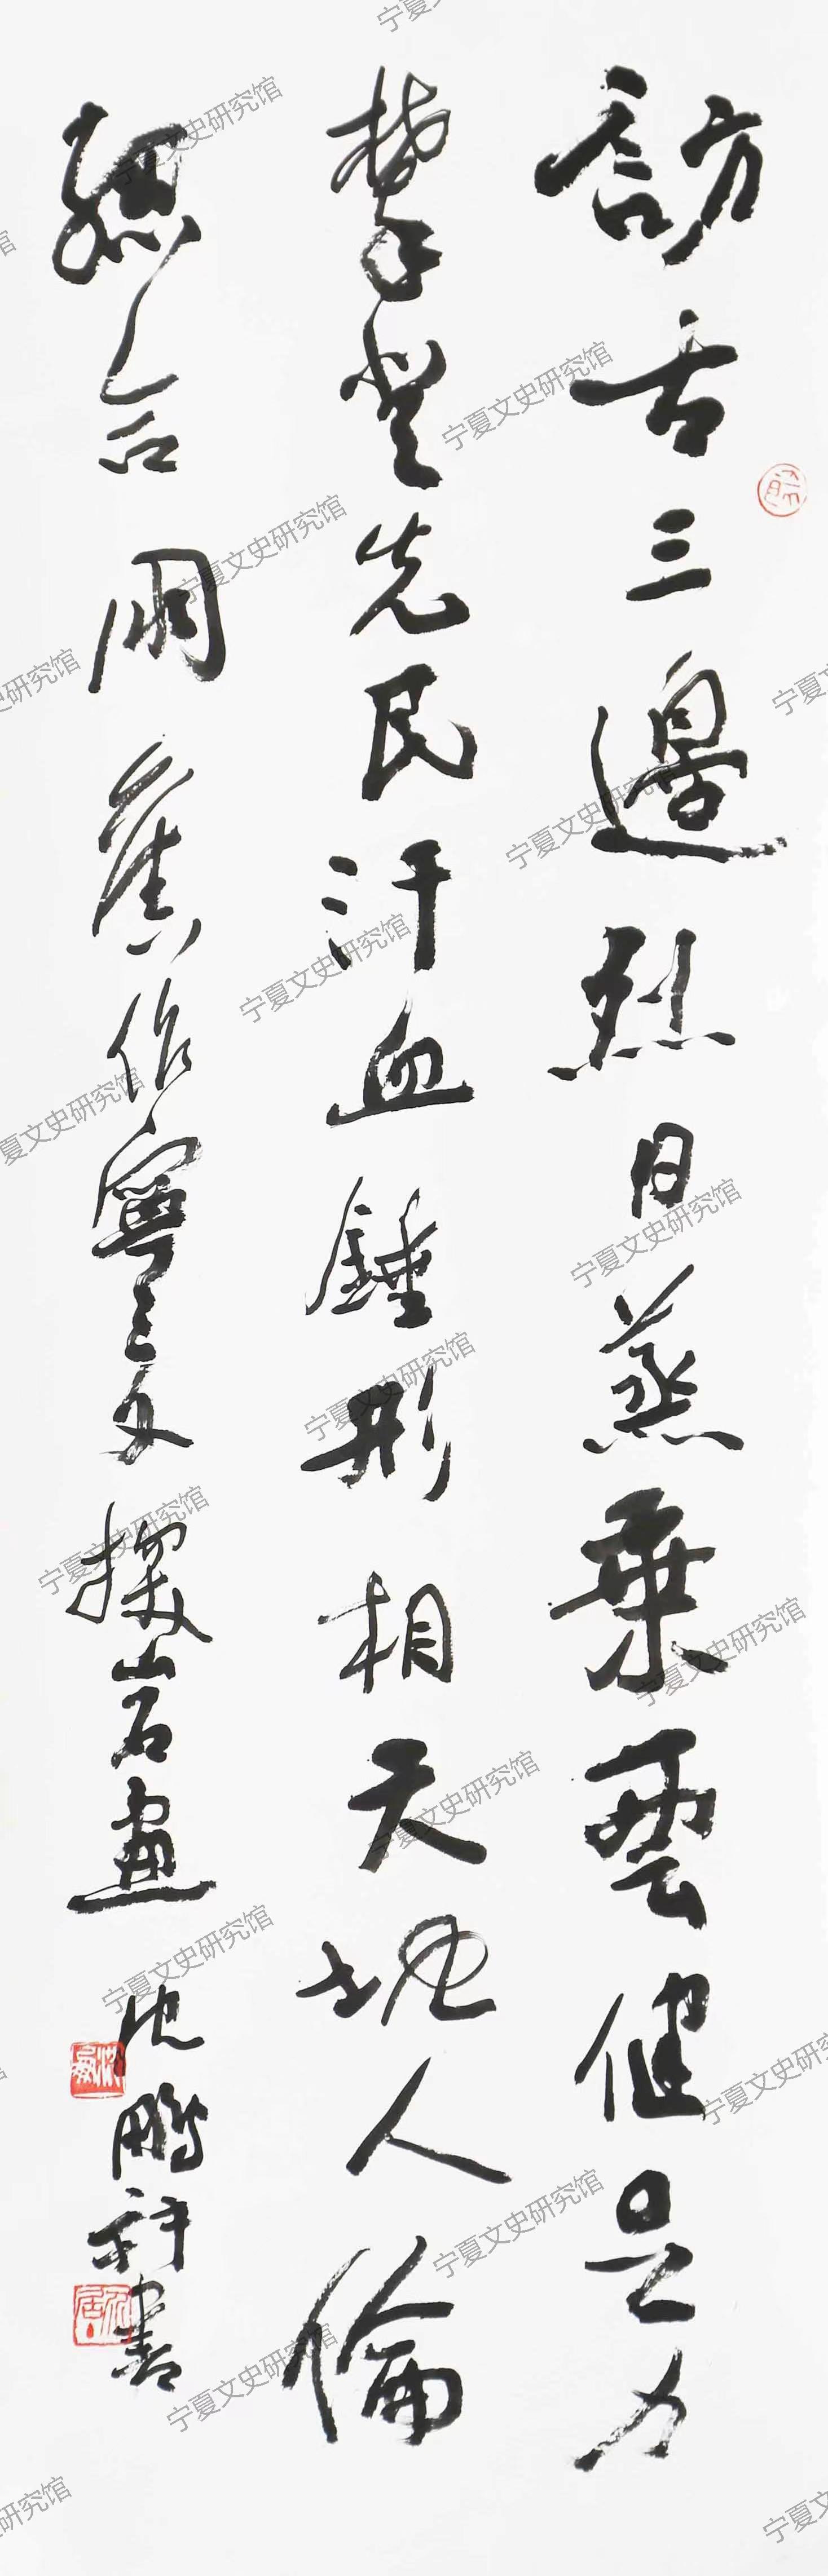 訪古三邊烈日蒸乘雲健足力
攀登先民汗血錘形相天地人倫
總合同 舊作寧夏探岩畫 沈鵬并書
宁夏文史研究馆